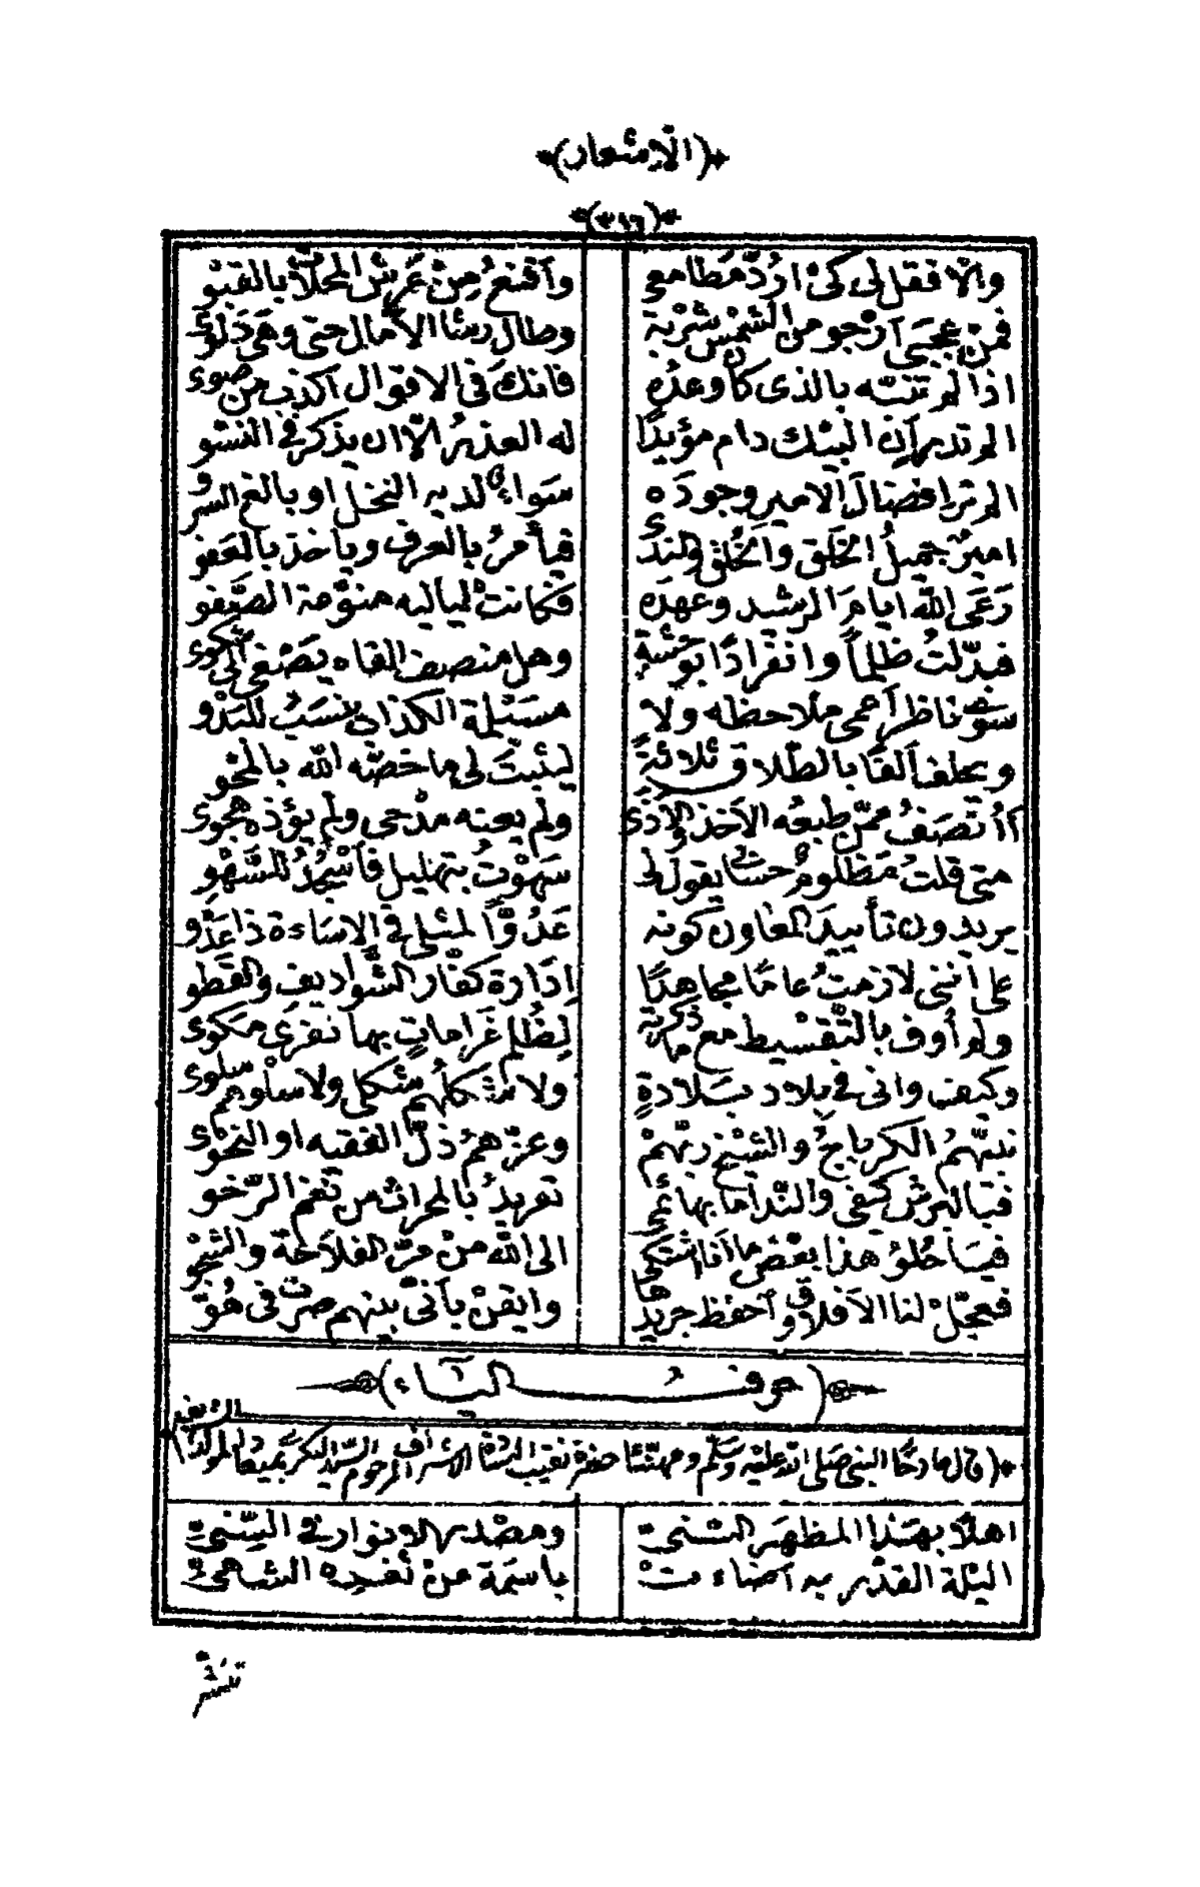 ﴿الاشعار﴾
﴿٣١٦﴾
والّا فقل لى كىْ اردَّ مَطامعى وآقنعُ مِنْ عَرْش المحلّات بالقبْو
فمنْ عجبى آرْجو من الشمْس شرْبة وطال رشا الآمال حتى وهَى دَلوى
اذا لم تنبّه بالذى كان وعدُه فانك فى الاقوال آكذب من ضوى
الم تدر آن البيْك دام مؤيدًا له العذرُ الّا ان يذكر فى النشو
الم تر افضالَ الامير وجودَه سَواءٌ لديه النخل او بالغ السرو
اميرٌ جميلُ الخَلق والخُلق والندى فيأمرُ بالعرف وياخذ بالعفو
رَعَى الله ايامَ الرشد وعهدَه فكانتْ لياليه منوّمة الصَّفو
فبدّلتُ ظلماً وانفرادًا بوحشة وهل منصف القاه يصْغى الى شكوى
سوى ناظر آعمى ملاحظه ولا مسَيْلمة الكذاب ينسَبُ للبَدْو
ويحلف آلفًا بالطّلاق ثلاثةً ليثبتَ لى ما خصّه الله بالمحْو
أأنصَفُ ممّن طبعُه الآخذ والاذى ولم يعنه مدْحى ولم يؤذه هجوى
متى قلتُ مَظلومٌ حسّابا يقول لى سَهوْتُ بتهليل فآسْجُدُ للسَّهْوِ
يريدون تأييدَ المعاون كونه عَدُوًّا لمثلى فى الاسَاءة ذا عَدْو
على اننى لازمتُ عامًا مجاهدًا اِدَارة كفّار الشّواديف والقطو
ولم أوف بالتّقسْيط مع ما ذكرته لِظُلم غَرامات بها تفرَى مكوى
وكيف وانى فى بلاد بَلادةٍ ولا شكلُهم شكلى ولا سلْوهم سلوى
نبيّهُم الكرباجُ والشيْخ ربّهمْ وعزّهمُ ذلّ الفقيه او النحْوى
فبالهرش كيفى والنّدامَا بهائمى تغريدُ بالمحراث من نغم الرّخو
فيا حُلوُ هذا بعْض ما آنا اشتكى الى الله منْ مرّ الفلاحة والشجْو
فعجّلْ لنا الآفلاق وآحفظ جريدها وايقنْ بآنّى بينهم صرْتُ فى هُوّ
﴿حرف اليآء﴾
﴿قال مادحًا النبى صَلى الله عليْه وسَلّم ومهنّئا حضرة نقيب السّادة الاشراف المرحوم السّيد البكرى بميعاد المولد الشريف﴾
اهلًا بهَذا المظهَر السَنىّ ومصْدر الانوار فى السّنىّ
اليْلة القدْر به آضاءتْ باسْمة عنْ ثغره الشهىّ
تنشر